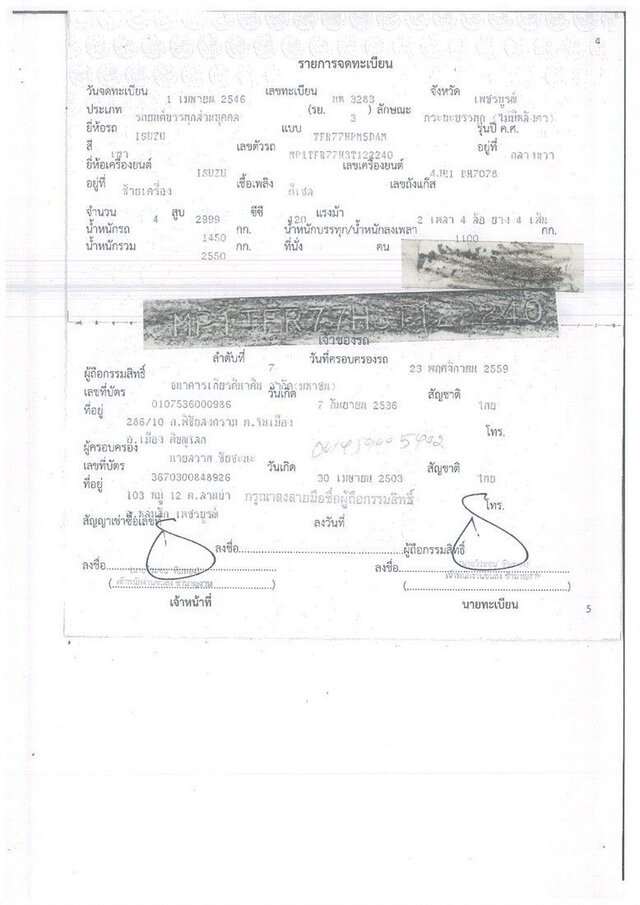 4
รายการจดทะเบียน
วันจดทะเบียน 1 เมษายน 2546 เลขทะเบียน บท 3283 จังหวัด เพชรบูรณ์
ประเภท รถยนต์บรรทุกส่วนบุคคล (รย. 3 ) ลักษณะ กระบะบรรทุก (ไม่มีหลังคา)
ยี่ห้อรถ ISUZU แบบ TFR77HPM5DAM รุ่นปี ค.ศ.
สี เทา เลขตัวรถ MP1TFR77H3T122240 อยู่ที่ กลางขวา
ยี่ห้อเครื่องยนต์ ISUZU เลขเครื่องยนต์ 4JH1 BH7078
อยู่ที่ ซ้ายเครื่อง เชื้อเพลิง ดีเซล เลขถังแก๊ส
จำนวน 4 สูบ 2999 ซีซี 120 แรงม้า 2 เพลา 4 ล้อ ยาง 4 เส้น
น้ำหนักรถ 1450 กก. น้ำหนักบรรทุก/น้ำหนักลงเพลา 1100 กก.
น้ำหนักรวม 2550 กก. ที่นั่ง คน
เจ้าของรถ
ลำดับที่ 7 วันที่ครอบครองรถ 23 พฤศจิกายน 2559
ผู้ถือกรรมสิทธิ์ ธนาคารเกียรตินาคิน จำกัด(มหาชน)
เลขที่บัตร 0107536000986 วันเกิด 7 กันยายน 2536 สัญชาติ ไทย
ที่อยู่ 286/10 ถ.พิชัยสงคราม ต.ในเมือง
อ.เมือง พิษณุโลก โทร.
ผู้ครอบครอง
เลขที่บัตร 3670300848926 วันเกิด 30 เมษายน 2503 สัญชาติ ไทย
ที่อยู่ 103 หมู่ 12 กรุณาลงลายมือชื่อผู้ถือกรรมสิทธิ์
เพชรบูรณ์ โทร.
สัญญาเช่าซื้อเลขที่ ลงวันที่
ลงชื่อ ผู้ถือกรรมสิทธิ์
ลงชื่อ ลงชื่อ
เจ้าหน้าที่ นายทะเบียน
5